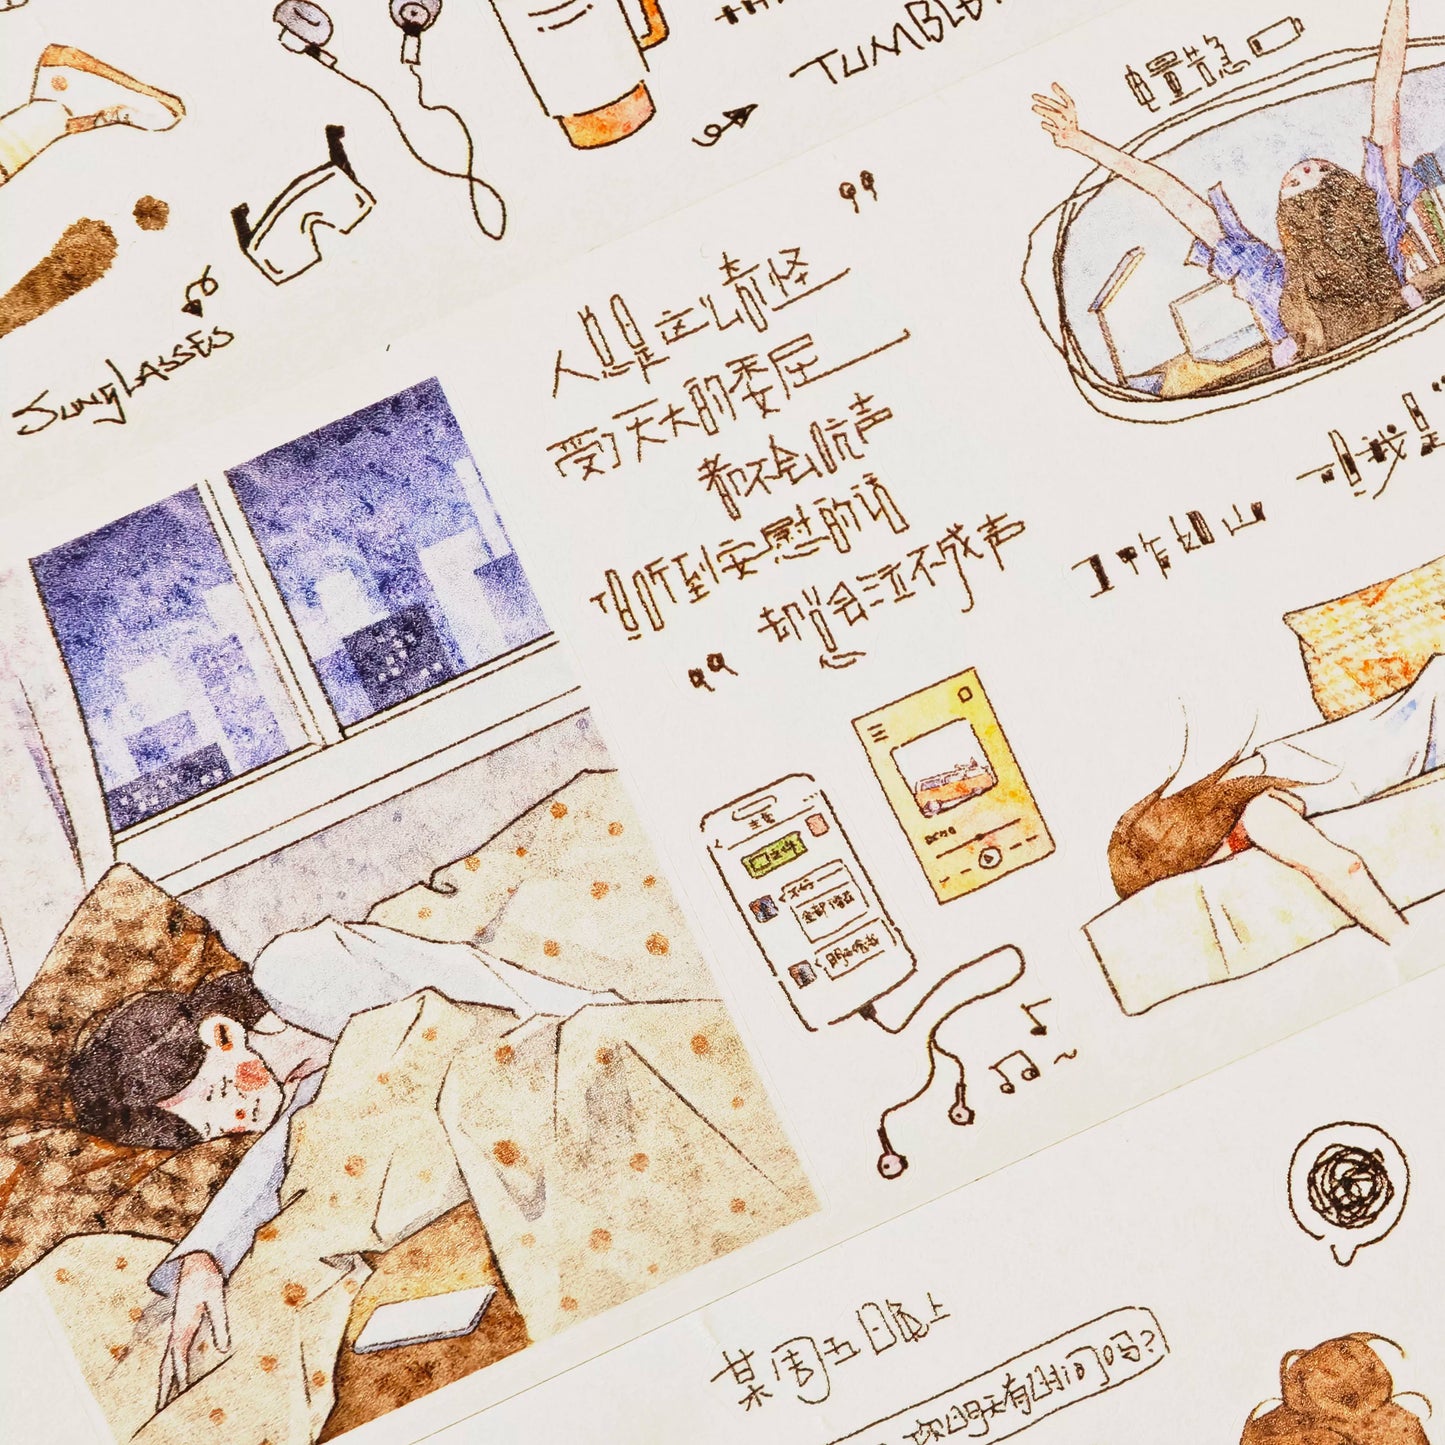 TUMBLE
电量告急
SUNGLASSES
人总是这么奇怪
受了天大的委屈
都不会吭声
听到安慰的话
却总会泣不成声
工作如山
可我是
某周五日晚上
你明天有时间吗?